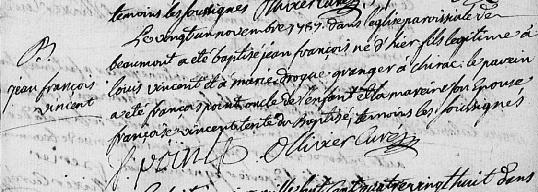 temoins les soussignés Ollivier Curé
B.
jean françois
vincent
Le vingt un novembre 1787 dans l'eglise paroissiale de
beaumont a eté baptisé jean françois né d'hier fils legitime à
louis vincent et à marie granger à le parain
a eté françois point oncle de l'enfant et la maraine son Epouse
françoise vincent tente du Baptisé, temoins les soussignés
point Ollivier Curé
quatre vingt huit dans